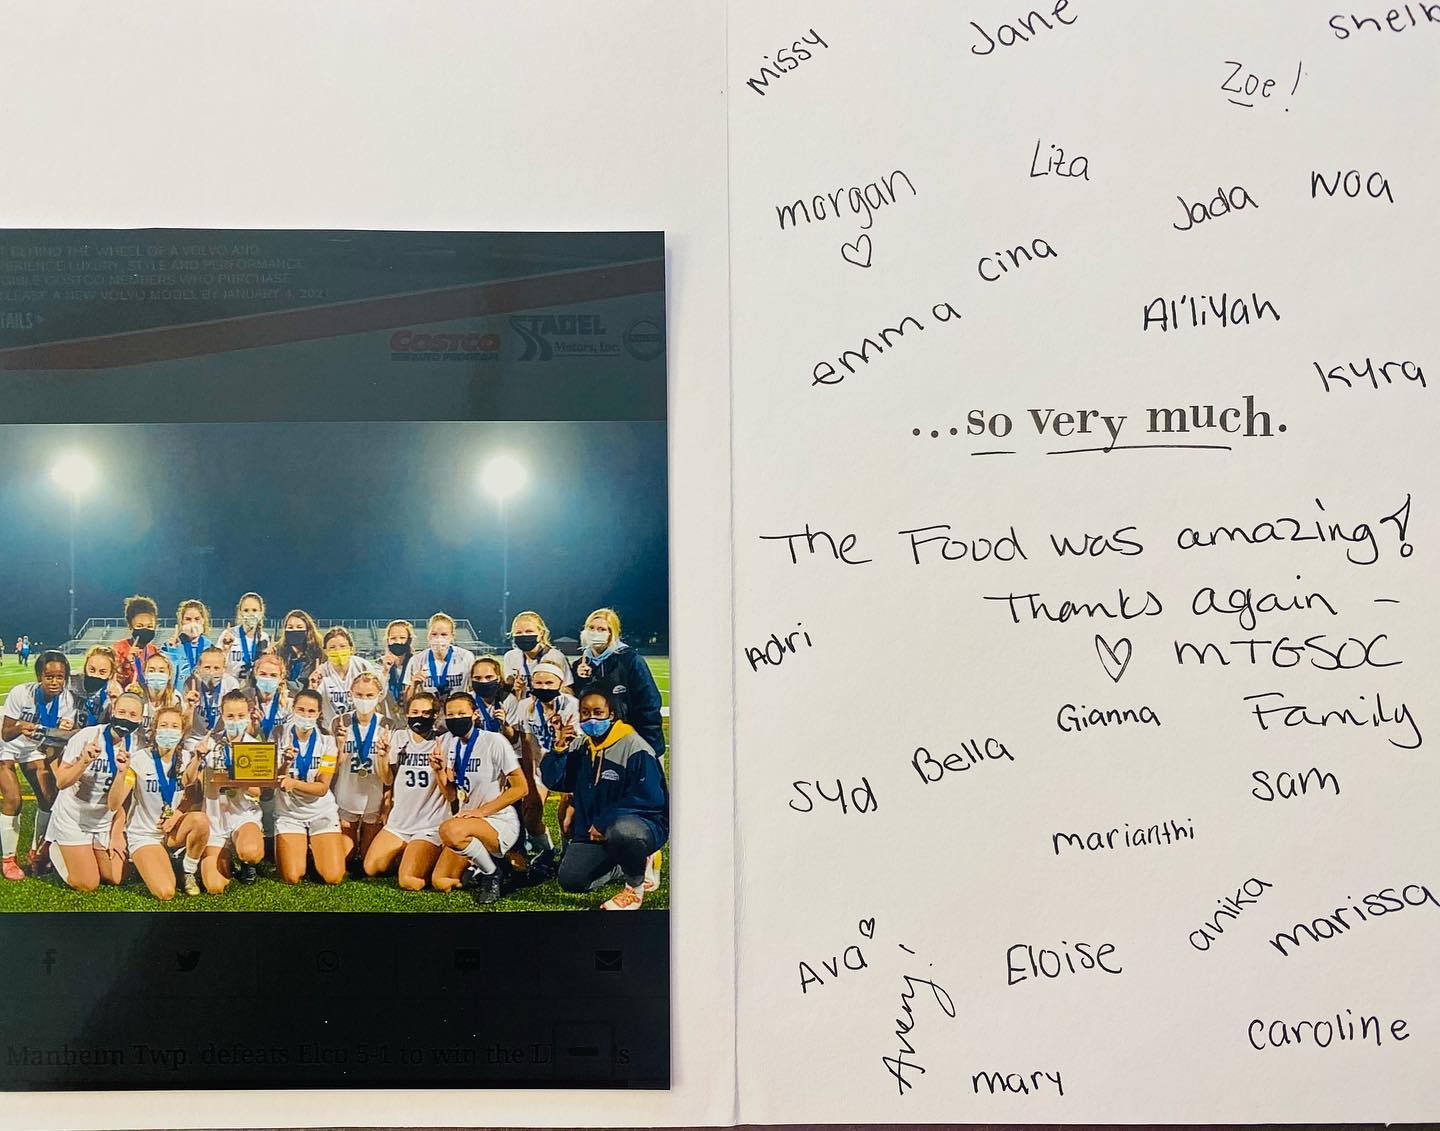 BEHIND THE WHEEL OF A VOLVO AND
ERIENCE LUXURY, STYLE AND PERFORMANCE
IBLE COSTCO MEMBERS WHO PURCHASE
LEASE A NEW VOLVO MODEL BY JANUARY 4, 2021
TAILS
COSTCO
AUTO PROGRAM
STADEL
Motors, Inc.
TOWNSHIP
39
Manheim Twp. defeats Elco 5-1 to win the L
s
missy
Jane
shelb
Zoe!
Liza
morgan
Jada
Noa
cina
emma
Al'liyah
Kyra
...so very much.
The Food was amazing!
Thanks again -
♡ MTGSOC
Family
Adri
Gianna
Bella
syd
sam
marianthi
anika
marissa
Ava
Avery!
Eloise
caroline
mary